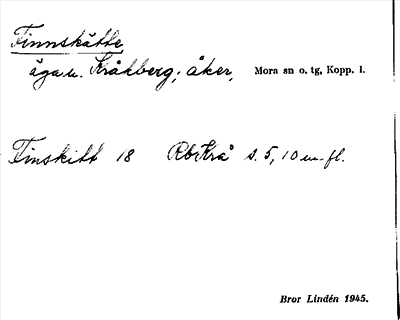 Finnskätte
äga u. Kråkberg; åker, Mora sn o. tg, Kopp. l.
Finskitt 18 RbKrå s. 5, 10 m. fl.
Bror Lindén 1945.